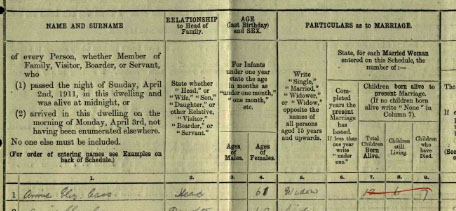 NAME AND SURNAME
of every Person, whether Member of
Family, Visitor, Boarder, or Servant,
who
(1) passed the night of Sunday, April
2nd, 1911, in this dwelling and
was alive at midnight, or
(2) arrived in this dwelling on the
morning of Monday, April 3rd, not
having been enumerated elsewhere.
No one else must be included.
(For order of entering names see Examples on
back of Schedule.)
RELATIONSHIP
to Head of
Family.
State whether
"Head," or
"Wife," "Son,"
"Daughter," or
other Relative,
"Visitor,"
"Boarder," or
"Servant."
AGE
(last Birthday)
and SEX.
For Infants
under one
year state the
age in months
as "under
one month,"
"one month,"
etc.
Ages
of
Males.
Ages
of
Females.
PARTICULARS as to MARRIAGE.
Write
"Single,"
"Married,"
"Widower,"
or "Widow,"
opposite the
names of
all persons
aged 15 years
and upwards.
State, for each Married Woman
entered on this Schedule, the
number of :—
Completed
years the
present
Marriage
has
lasted.
If less than
one year
write
"under
one."
Children born alive to
present Marriage.
(If no children born
alive write "None" in
Column 7).
Total
Children
Born
Alive.
Children
still
Living.
Children
who
have
Died.
1. 2. 3. 4. 5. 6. 7. 8. 9.
1 Head Widow 6